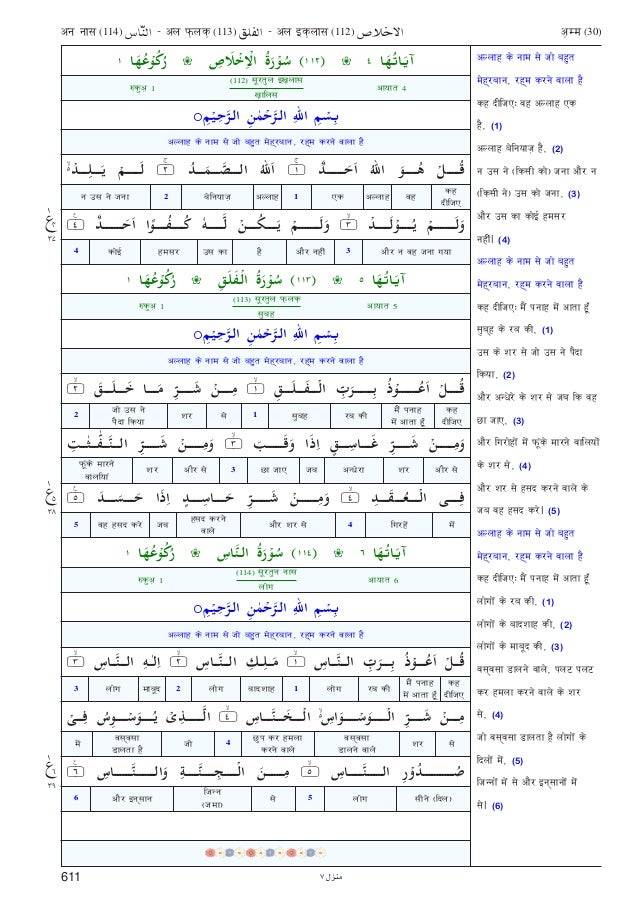 अन नास (114) النّاس - अल फ़लक़ (113) الفلق - अल इख़लास (112) الاخلاص
अ़म्म (30)
اٰيَاتُهَا ٤ ❀ (١١٢) سُوْرَةُ الْاِخْلَاصِ ❀ رُكُوْعُهَا ١
रुकुअ़ 1 (112) सूरतुल इख़्लास ख़ालिस आयात 4
بِسْمِ اللهِ الرَّحْمٰنِ الرَّحِيْمِ
अल्लाह के नाम से जो बहुत मेह्रबान, रह्म करने वाला है
قُلْ هُوَ اللهُ اَحَدٌ ١ اَللهُ الصَّمَدُ ٢ لَمْ يَلِدْ
न उस ने जना 2 बेनियाज़ अल्लाह 1 एक अल्लाह वह कह दीजिए
وَلَمْ يُوْلَدْ ٣ وَلَمْ يَكُنْ لَّهٗ كُفُوًا اَحَدٌ ٤
4 कोई हमसर उस का है और नहीं 3 और न वह जना गया
ع ١ ٤ ٣٧
اٰيَاتُهَا ٥ ❀ (١١٣) سُوْرَةُ الْفَلَقِ ❀ رُكُوْعُهَا ١
रुकुअ़ 1 (113) सूरतुल फ़लक़ सुबह आयात 5
بِسْمِ اللهِ الرَّحْمٰنِ الرَّحِيْمِ
अल्लाह के नाम से जो बहुत मेह्रबान, रह्म करने वाला है
قُلْ اَعُوْذُ بِرَبِّ الْفَلَقِ ١ مِنْ شَرِّ مَا خَلَقَ ٢
2 जो उस ने पैदा किया शर से 1 सुबह रब की मैं पनाह में आता हूँ कह दीजिए
وَمِنْ شَرِّ غَاسِقٍ اِذَا وَقَبَ ٣ وَمِنْ شَرِّ النَّفّٰثٰتِ
फूंके मारने वालियां शर और से 3 छा जाए जब अन्धेरा शर और से
فِى الْعُقَدِ ٤ وَمِنْ شَرِّ حَاسِدٍ اِذَا حَسَدَ ٥
5 वह हसद करे जब हसद करने वाले और शर से 4 गिरहें में
ع ١ ٥ ٣٨
اٰيَاتُهَا ٦ ❀ (١١٤) سُوْرَةُ النَّاسِ ❀ رُكُوْعُهَا ١
रुकुअ़ 1 (114) सूरतुन नास लोग आयात 6
بِسْمِ اللهِ الرَّحْمٰنِ الرَّحِيْمِ
अल्लाह के नाम से जो बहुत मेह्रबान, रह्म करने वाला है
قُلْ اَعُوْذُ بِرَبِّ النَّاسِ ١ مَلِكِ النَّاسِ ٢ اِلٰهِ النَّاسِ ٣
3 लोग माबूद 2 लोग बादशाह 1 लोग रब की मैं पनाह में आता हूँ कह दीजिए
مِنْ شَرِّ الْوَسْوَاسِ الْخَنَّاسِ ٤ الَّذِىْ يُوَسْوِسُ فِىْ
में वस्वसा डालता है जो 4 छुप कर हमला करने वाले वस्वसा डालने वाले शर से
صُدُوْرِ النَّاسِ ٥ مِنَ الْجِنَّةِ وَالنَّاسِ ٦
6 और इन्सान जिन्न (जमा) से 5 लोग सीने (दिल)
ع ١ ٦ ٣٩
अल्लाह के नाम से जो बहुत
मेह्रबान, रह्म करने वाला है
कह दीजिए: वह अल्लाह एक
है, (1)
अल्लाह बेनियाज़ है, (2)
न उस ने (किसी को) जना और न
(किसी ने) उस को जना, (3)
और उस का कोई हमसर
नहीं। (4)
अल्लाह के नाम से जो बहुत
मेह्रबान, रह्म करने वाला है
कह दीजिए: मैं पनाह में आता हूँ
सुबह के रब की, (1)
उस के शर से जो उस ने पैदा
किया, (2)
और अन्धेरे के शर से जब कि वह
छा जाए, (3)
और गिरोहों में फूंके मारने वालियों
के शर से, (4)
और शर से हसद करने वाले के
जब वह हसद करे। (5)
अल्लाह के नाम से जो बहुत
मेह्रबान, रह्म करने वाला है
कह दीजिए: मैं पनाह में आता हूँ
लोगों के रब की, (1)
लोगों के बादशाह की, (2)
लोगों के माबूद की, (3)
वस्वसा डालने वाले, पलट पलट
कर हमला करने वाले के शर
से, (4)
जो वस्वसा डालता है लोगों के
दिलों में, (5)
जिन्नों में से और इन्सानों में
से। (6)
611
منزل ٧